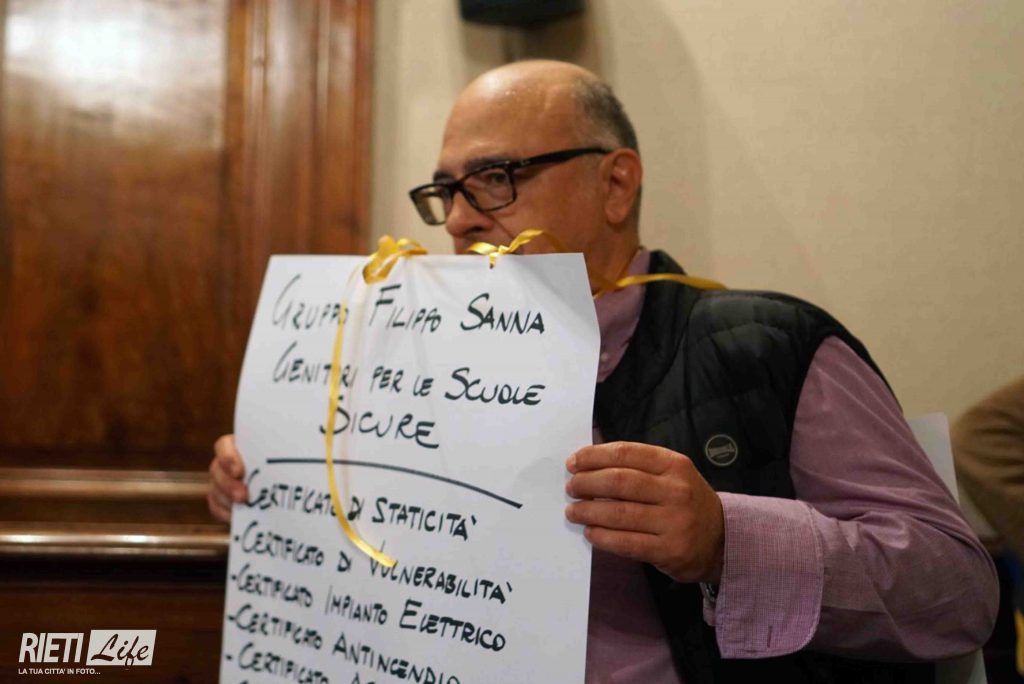 GRUPPO FILIPPO SANNA
GENITORI PER LE SCUOLE
SICURE
-CERTIFICATO DI STATICITA'
-CERTIFICATO DI VULNERABILITA'
-CERTIFICATO IMPIANTO ELETTRICO
-CERTIFICATO ANTINCENDIO
-CERTIFICATO
RIETI Life
LA TUA CITTA' IN FOTO...